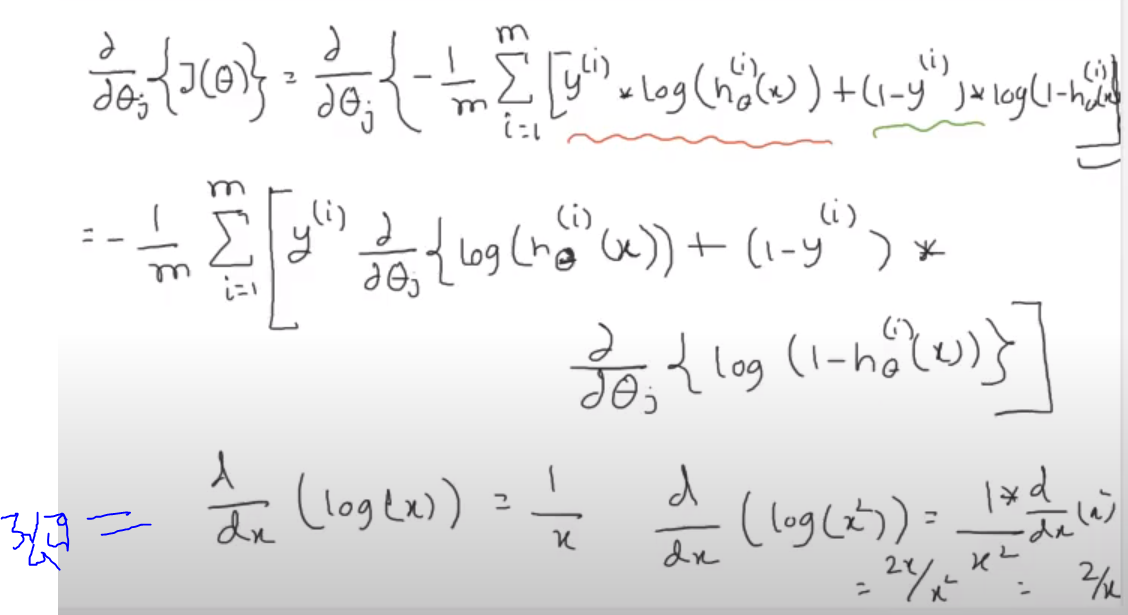 ∂/∂θⱼ {J(θ)} = ∂/∂θⱼ { -1/m Σ_{i=1}^{m} [y⁽ⁱ⁾ * log(h_θ⁽ⁱ⁾(x)) + (1-y⁽ⁱ⁾) * log(1-h_θ⁽ⁱ⁾(x)]
= -1/m Σ_{i=1}^{m} [ y⁽ⁱ⁾ ∂/∂θⱼ { log(h_θ⁽ⁱ⁾(x)) + (1-y⁽ⁱ⁾) *
∂/∂θⱼ { log (1-h_θ⁽ⁱ⁾(x)) } ]
d/dx (log(x)) = 1/x d/dx (log(x²)) = 1*d/dx(x²) / x²
= 2x/x² = 2/x